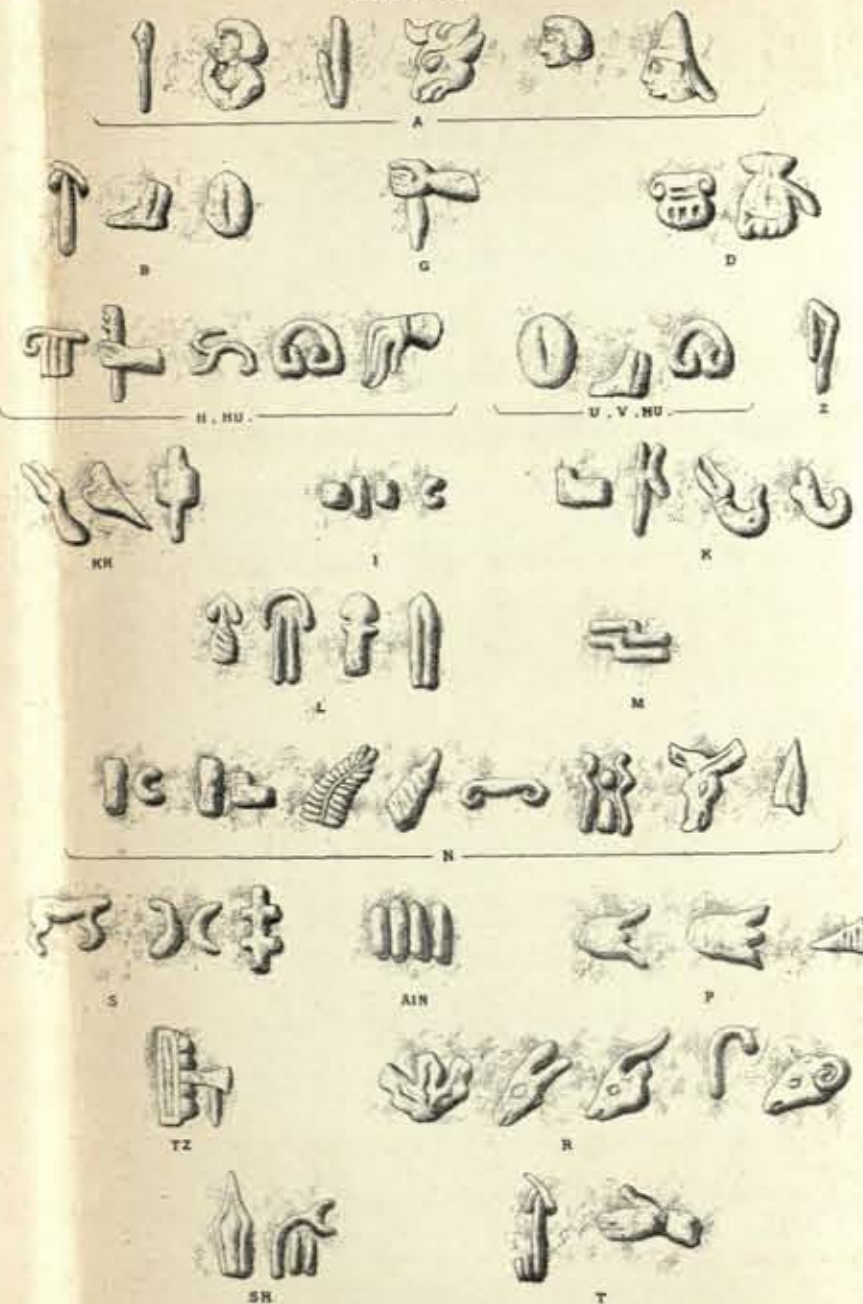 A
B G D
H . HU . U . V . HU . Z
KH I K
L M
N
S AIN P
TZ R
SH T